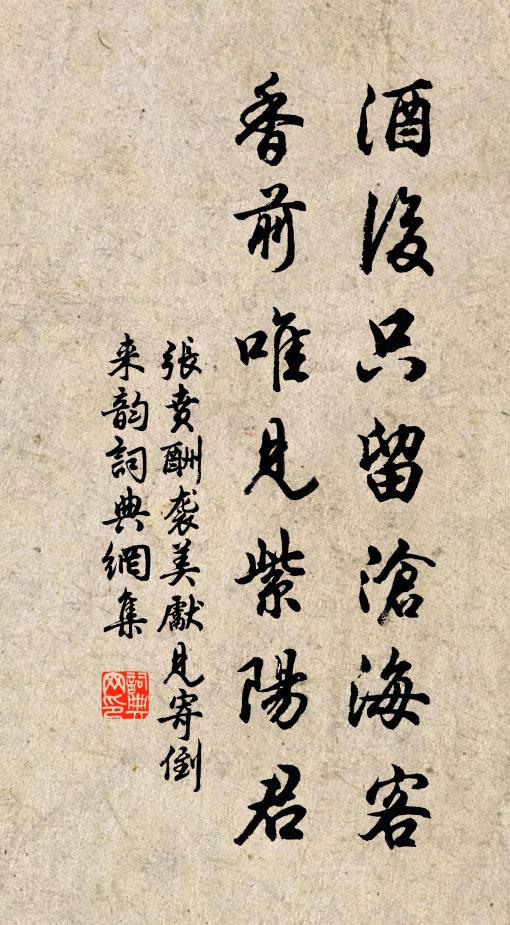 酒後只留滄海客
香前唯見紫陽君
張賁酬袭美獻見寄倒
来韵詞典網集
詞典
网印